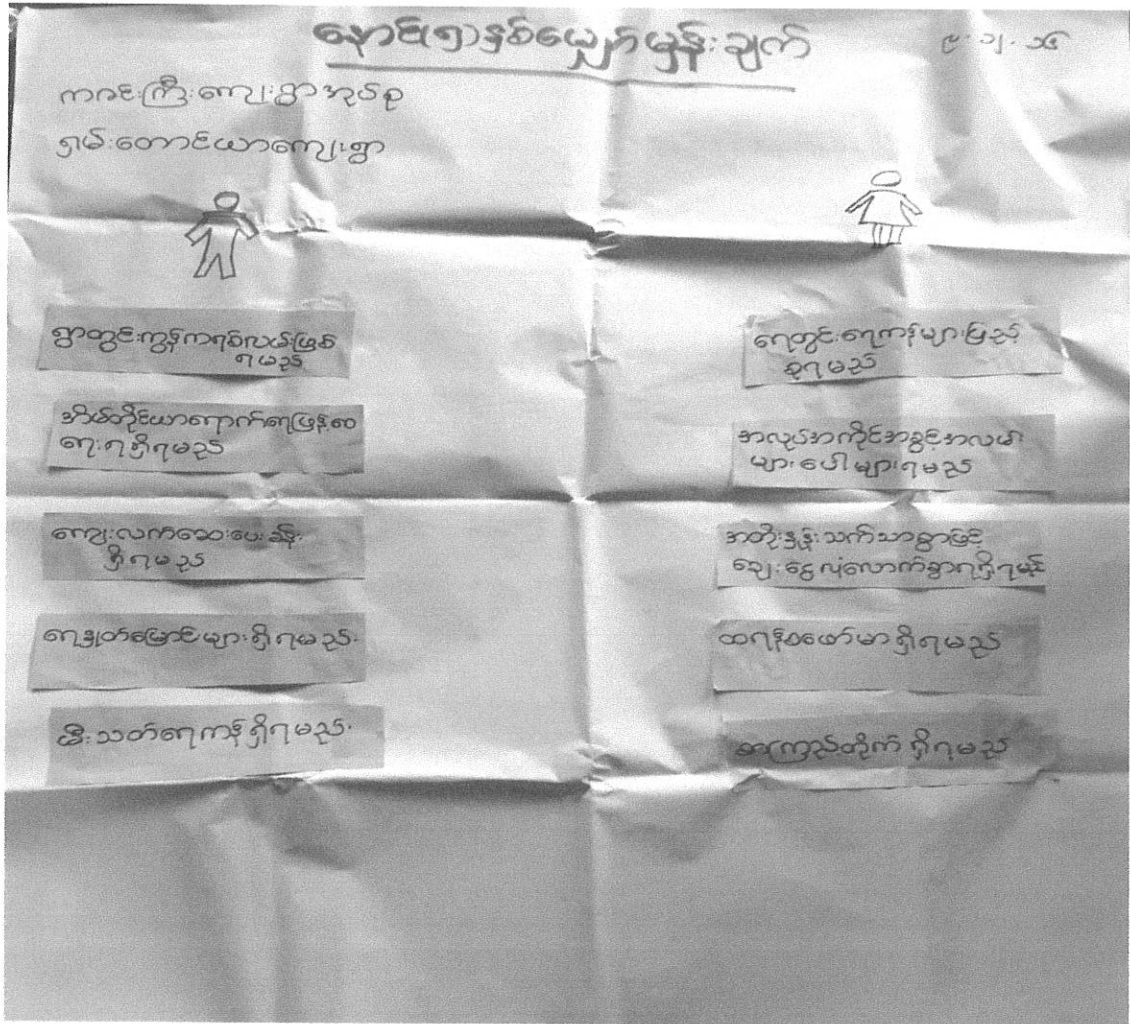 နောင်၅နှစ်မျှော်မှန်းချက်
၉.၁၂.၁၄
ကဂင်းကြီးကျေးရွာအုပ်စု
ရှမ်းတောင်ယာကျေးရွာ
ရွာတွင်းကွန်ကရစ်လမ်းဖြစ်
ရမည်
အိမ်တိုင်ယာရောက်ရေဖြန့်ဝေ
ရေးရရှိရမည်
ကျေးလက်ဆေးပေးခန်း
ရှိရမည်
ရေနှုတ်မြောင်းများရှိရမည်.
မီးသတ်ရေကန်ရှိရမည်.
ရေတွင်းရေကန်များပြည့်
စုံရမည်
အလုပ်အကိုင်အခွင့်အလမ်း
များပေါများရမည်
အတိုးနှုန်းသက်သာစွာဖြင့်
ချေးငွေလုံလောက်စွာရရှိရမည်
ထရန်စဖော်မာရှိရမည်
စာကြည့်တိုက်ရှိရမည်